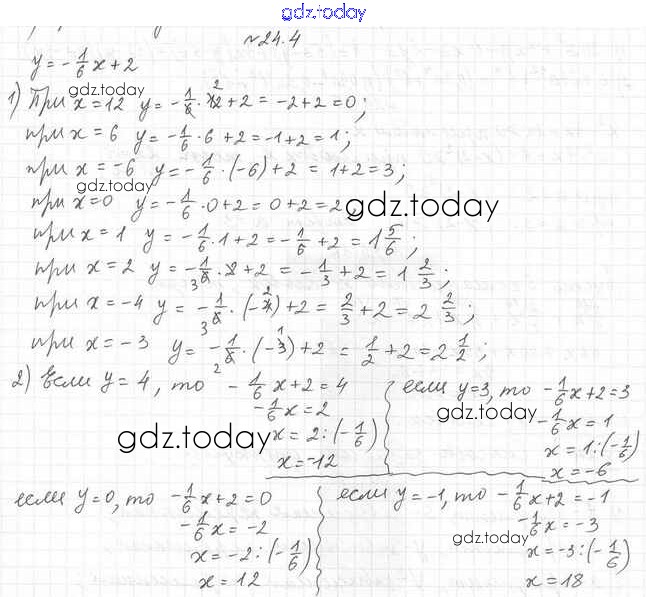 gdz.today
№24.4
y = -1/6 x + 2
gdz.today
1) При x = 12 y = -1/6 · 12 + 2 = -2 + 2 = 0;
2
при x = 6 y = -1/6 · 6 + 2 = -1 + 2 = 1;
при x = -6 y = -1/6 · (-6) + 2 = 1 + 2 = 3;
gdz.today
при x = 0 y = -1/6 · 0 + 2 = 0 + 2 = 2
gdz.today
при x = 1 y = -1/6 · 1 + 2 = -1/6 + 2 = 1 5/6;
при x = 2 y = -1/6 · 2 + 2 = -1/3 + 2 = 1 2/3;
3
при x = -4 y = -1/6 · (-4) + 2 = 2/3 + 2 = 2 2/3;
3 2
при x = -3 y = -1/6 · (-3) + 2 = 1/2 + 2 = 2 1/2;
2 1
2) Если y = 4, то -1/6 x + 2 = 4
-1/6 x = 2
gdz.today
x = 2 : (-1/6)
x = -12
если y = 3, то -1/6 x + 2 = 3
gdz.today
-1/6 x = 1
x = 1 : (-1/6)
x = -6
если y = 0, то -1/6 x + 2 = 0
-1/6 x = -2
x = -2 : (-1/6)
x = 12
если y = -1, то -1/6 x + 2 = -1
-1/6 x = -3
gdz.today
x = -3 : (-1/6)
x = 18